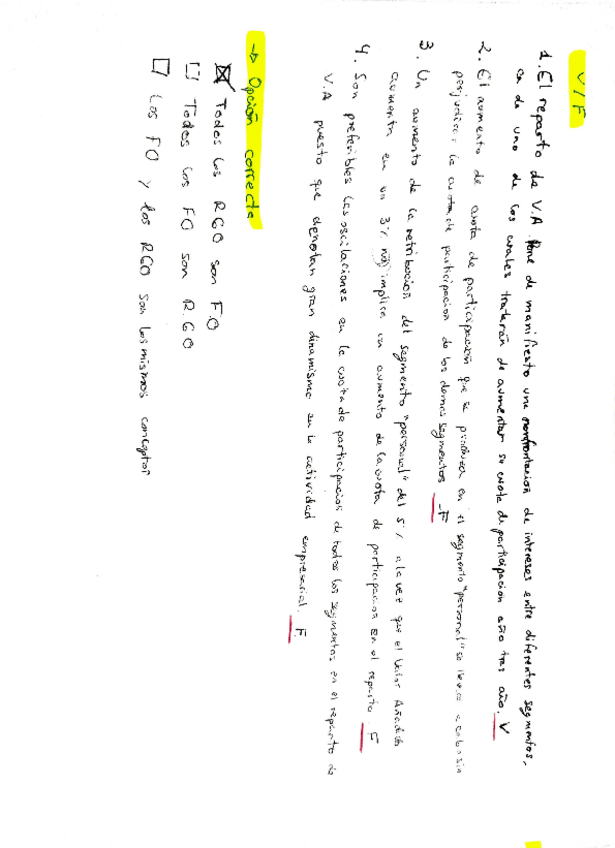 V/F
1. El reparto de V.A. Pone de manifiesto una confrontación de intereses entre diferentes segmentos,
cada uno de los cuales tratarán de aumentar su cuota de participación año tras año. V
2. El aumento de cuota de participación que se produzca en el segmento "personal" se lleva a cabo sin
perjudicar la cuota de participación de los demás segmentos. F
3. Un aumento de la retribución del segmento "personal" del 5% a la vez que el Valor Añadido
aumenta en un 3% no implica un aumento de la cuota de participación en el reparto. F
4. Son preferibles las oscilaciones en la cuota de participación de todos los segmentos en el reparto de
V.A puesto que denotan gran dinamismo en la actividad empresarial. F
→ Opción correcta
☒ Todos los RGO son F.O
☐ Todos los FO son R.GO
☐ Los FO y los RGO son los mismos conceptos